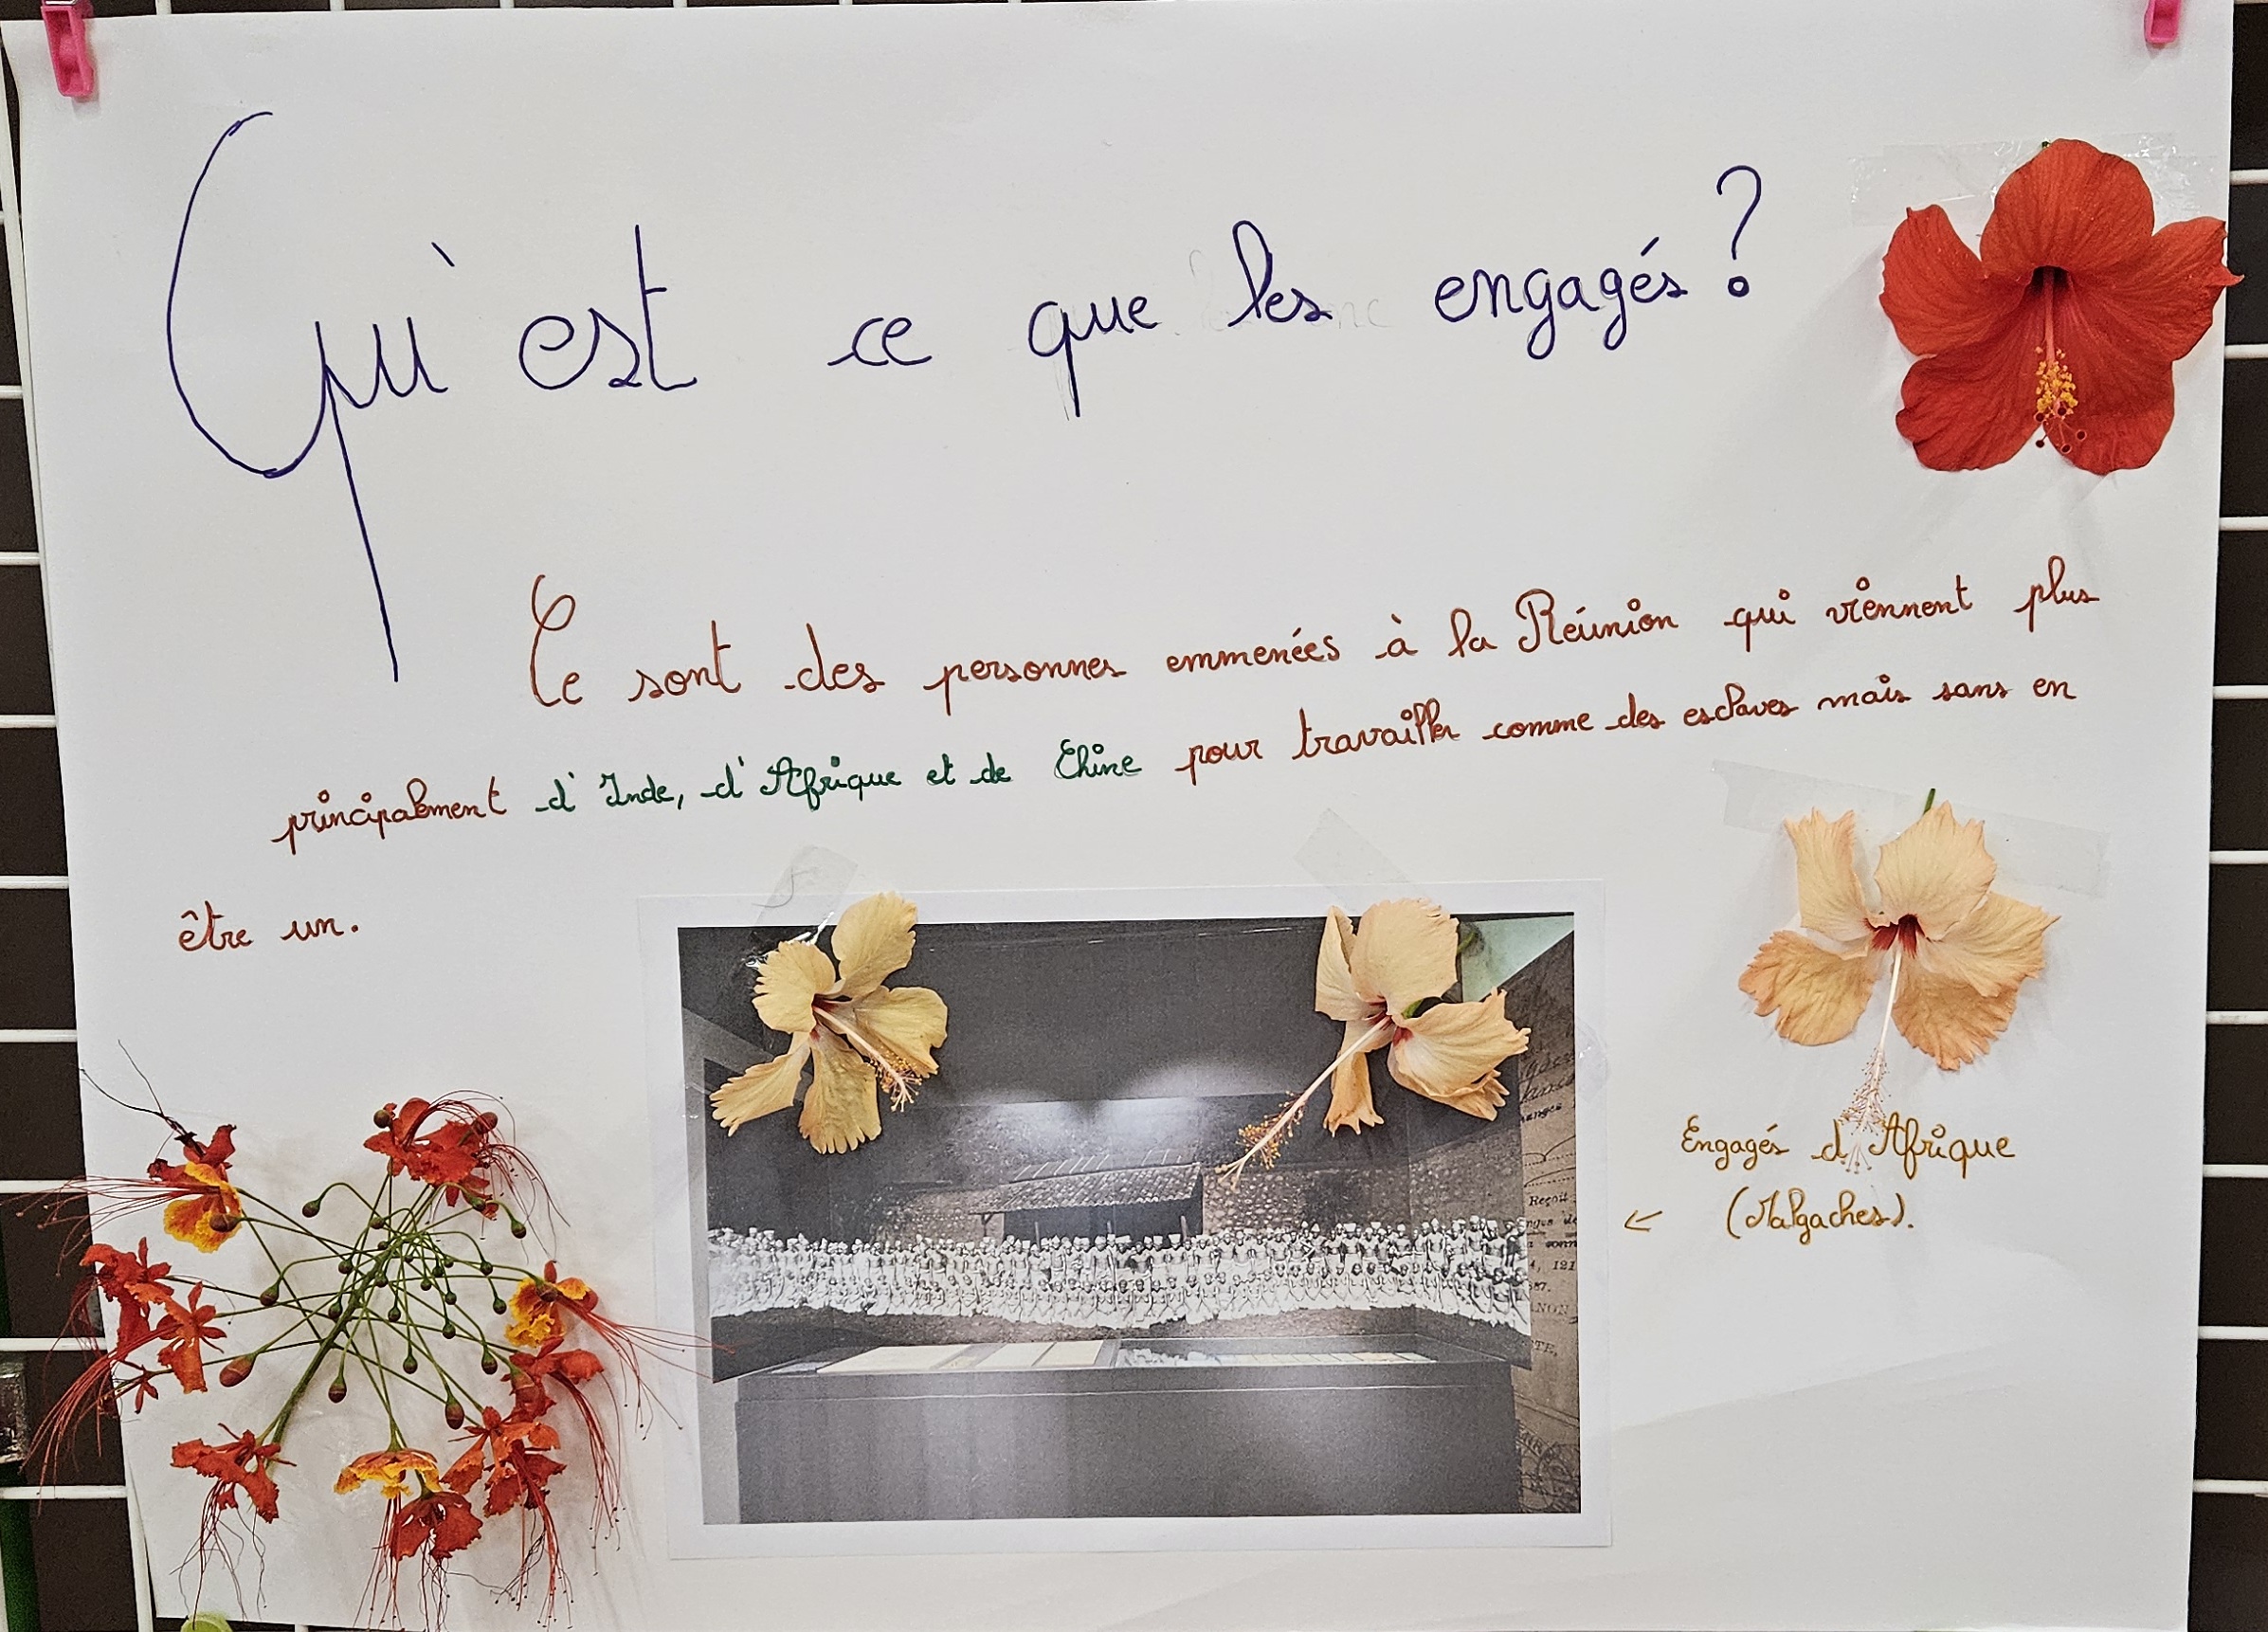 Qu'est ce que les engagés ?
Ce sont des personnes emmenées à la Réunion qui viennent plus
principalement d'Inde, d'Afrique et de Chine pour travailler comme des esclaves mais sans en
être un.
Engagés d'Afrique
← (Malgaches).
Reçoit
121